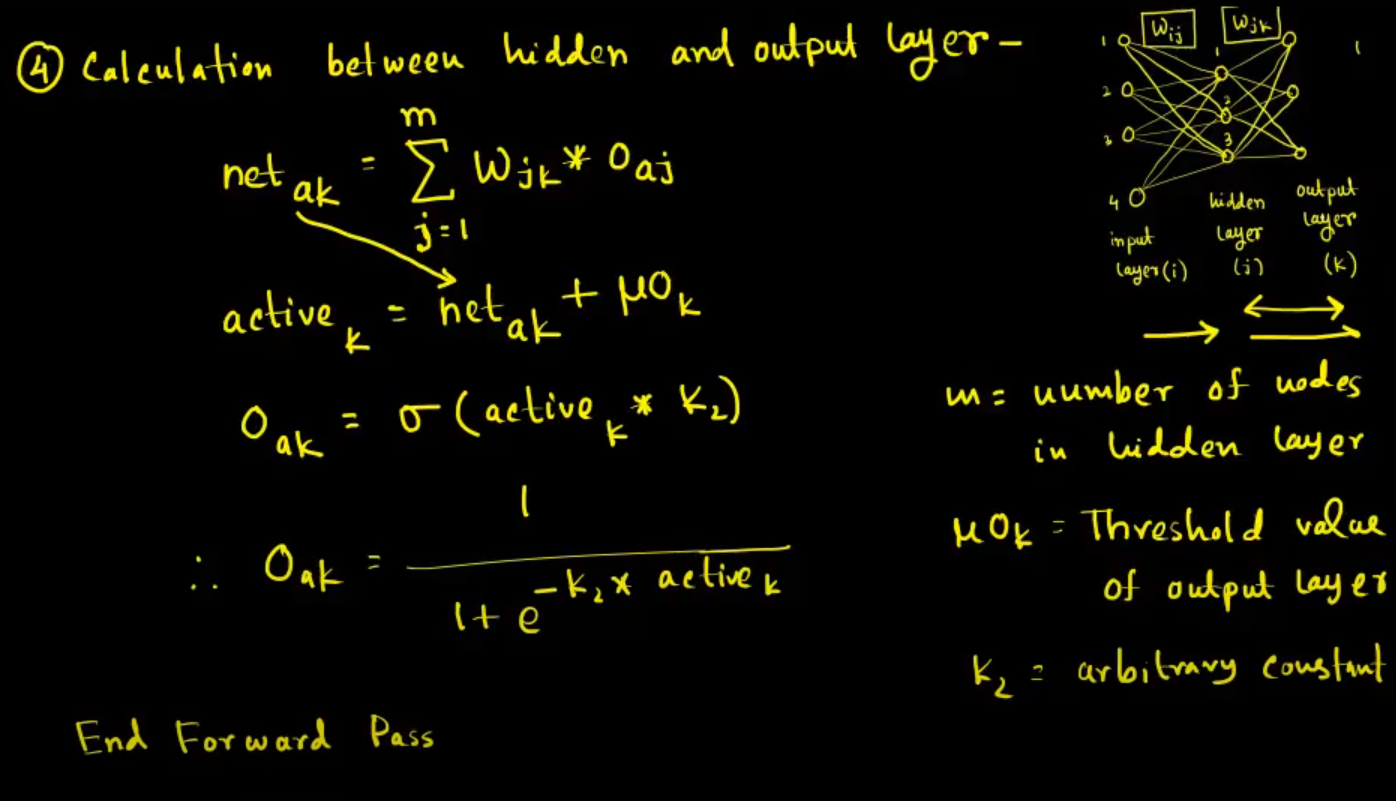 ④ Calculation between hidden and output layer –
m
net ak = ∑ Wjk * Oaj
j=1
active k = net ak + μOk
Oak = σ (active k * K₂)
1
∴ Oak = ―
1 + e^(-K₂ * active k)
End Forward Pass
Wij Wjk
1
1
1
2
2
3
3
4
input layer (i)
hidden layer (j)
output layer (K)
m = number of nodes
in hidden layer
μOk = Threshold value
of output layer
K₂ = arbitrary constant